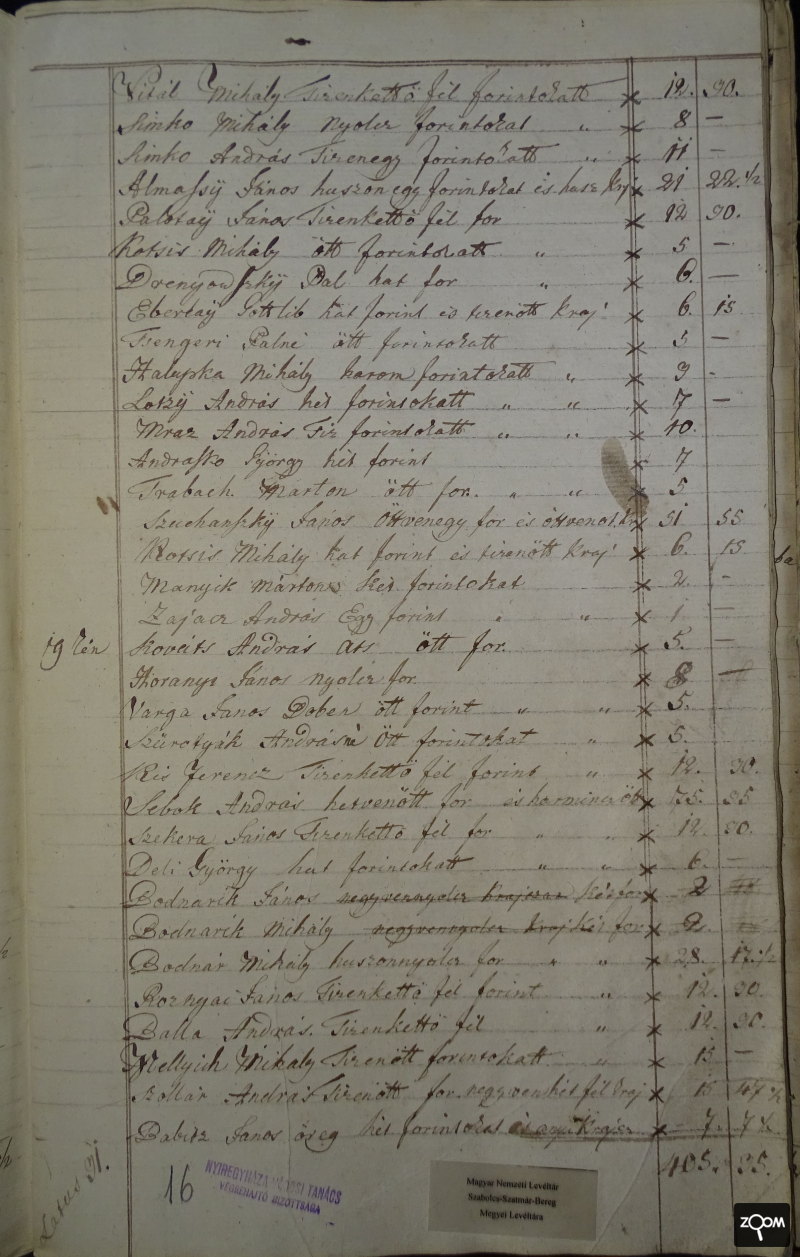 Vitál Mihaly Tizenkettö fél forintokatt x 12. 30.
Simko Mihály nyolcz forintokat " x 8 —
Simko András Tizenegy forintokatt " x 11 —
Almaſsÿ János huszonegy forintokat és husz kraj x 21 22.½
Palotaÿ János Tizenkettö fél for x 12 30.
Kotsis Mihály ött forintokatt " x 5 —
Pal hat for " x 6. —
Eberlaÿ Gottlib hat forint és tizenött kraj x 6. 15
Tsengeri Palné ött forintokatt x 5 —
Halupka Mihály három forintokatt " x 3 -
Lotzÿ András hét forintokatt " " x 7 —
Mraz András Tiz forintokatt " " x 10.
Andraſko György hét forint x 7
Trabach Márton ött for. " " x 5
Szuchanſzkÿ János öttvenegy for és öttvenött kr x 51 55
Kotsis Mihály hat forint és tizenött kraj x 6. 15
Manyik márton két forintokat x 2. -
Zajacz András Egy forint " " x 1 —
19 kén Kováts András ats ött for. x 5. —
Horanyi János nyolcz for x 8 —
Varga Janos Dober ött forint " " x 5.
Andrásnè ött forintokat " x 5.
Kis Ferencz Tizenkettö fél forint " x 12. 30.
Sebok András hetvenött for és harmincz öt x 75. 35
Szekera János Tizenkettö fél for " " x 12 30.
Deli György hat forintokatt " " x 6. —
Bodnarik János negyvennyolcz krajczar két for x 2
Bodnarik Mihály negyvennyolcz kraj két for x 2
Bodnár Mihály huszonnyolcz for " " x 28. 17.½
Roznyai János Tizenkettö fél forint " x 12. 30.
Balla András. Tizenkettö fél " x 12 30.
Mellyich Mihaly Tizenött forintokatt " x 15 —
Zollar András Tizenött for. negyven hét fél kraj x 15 47 ½
Babitz Janos öreg hét forintokat és anyi Krajczr x 7. 7 ½
Latus 405. 35.
16
NYIREGYHÁZA VÁROSI TANÁCS
VÉGREHAJTÓ BIZOTTSÁGA
Magyar Nemzeti Levéltár
Szabolcs-Szatmár-Bereg
Megyei Levéltára
ZOOM